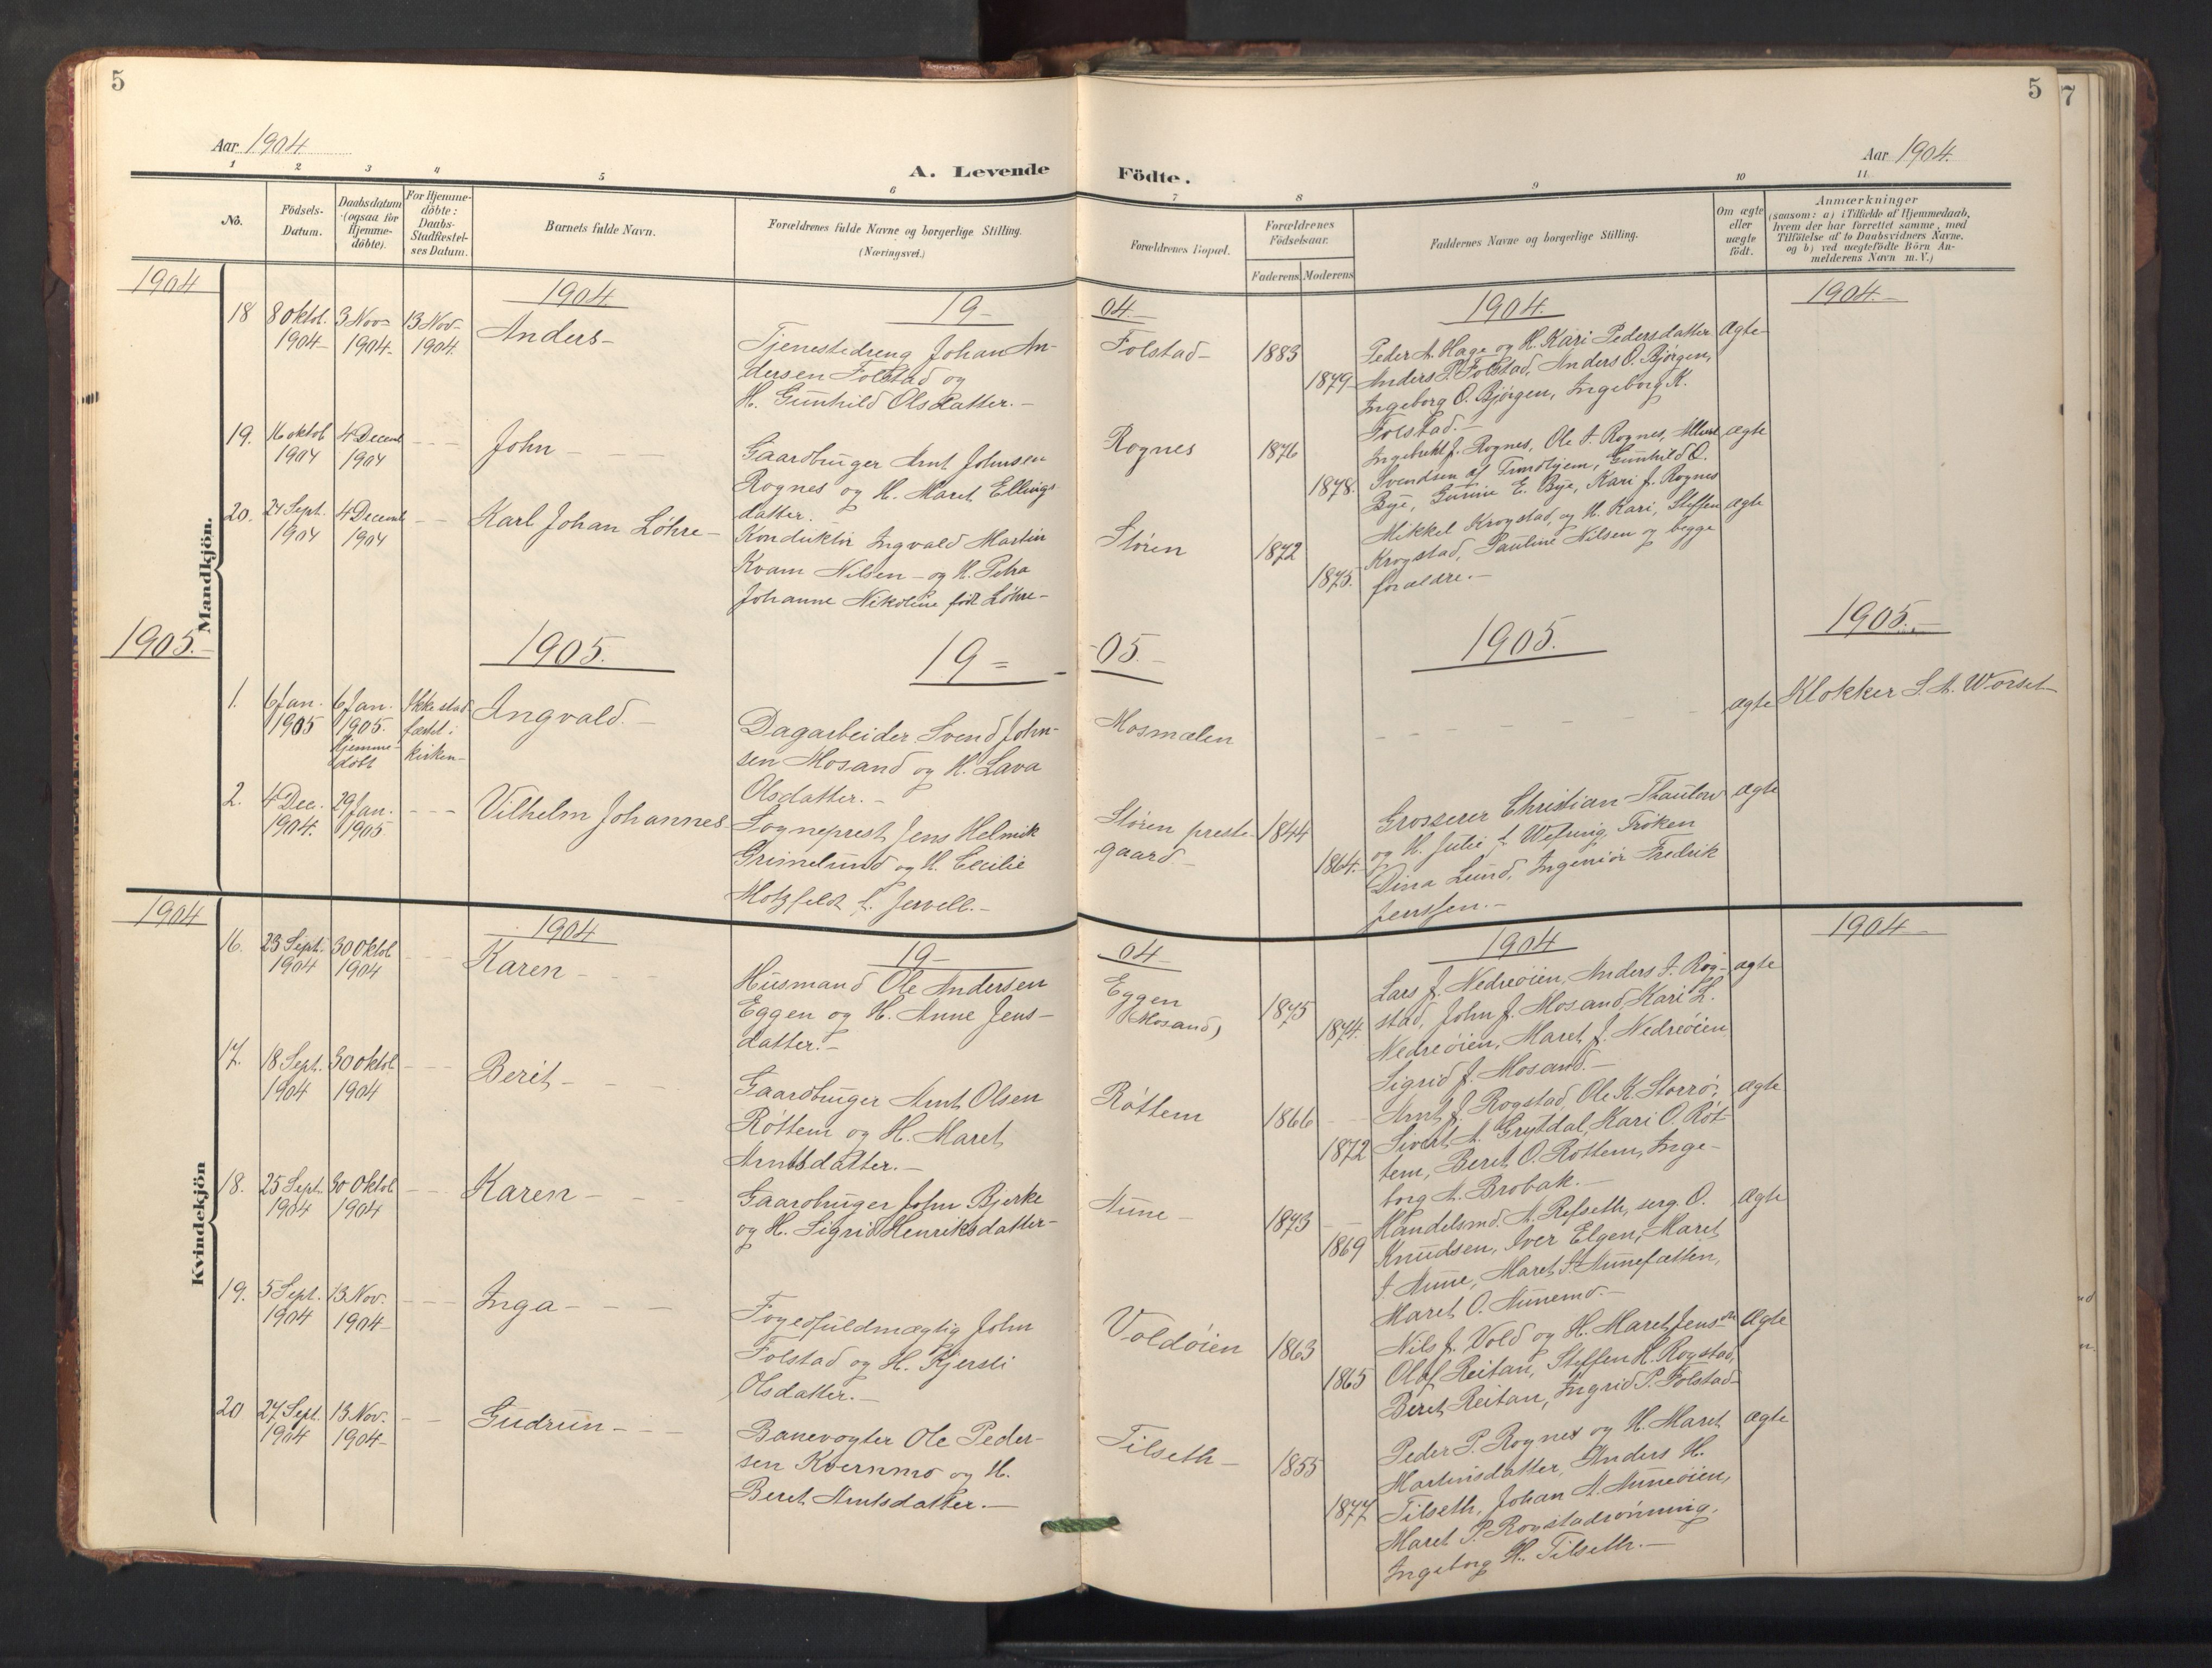 5
5
7
Aar 1904.
Aar 1904.
A. Levende
Födte.
1 2 3 4 5 6 7 8 9 10 11.
No.
Födsels-
Datum.
Daabsdatum
(ogsaa för
Hjemme-
döbte).
For Hjemme-
döbte:
Daabs-
Stadfæstel-
ses Datum.
Barnets fulde Navn.
Forældrenes fulde Navne og borgerlige Stilling.
(Næringsvei.)
Forældrenes Bopæl.
Forældrenes
Födselsaar.
Faderens Moderens
Faddernes Navne og borgerlige Stilling.
Om ægte
eller
uægte
födt.
Anmærkninger
(saasom: a) i Tilfælde af Hjemmedaab,
hvem der har forrettet samme, med
Tilföielse af to Daabsvidners Navne.
og b) ved uægtefödte Börn An-
melderens Navn m. V.)
Mandkjön.
1904
1904
19-
04-
1904.
1904-
18
8 Oktob.
1904-
3 Nov-
1904-
13 Nov-
1904.
Anders-
Tjenestedreng Johan An-
dersen Folstad og
H. Gunhild Olsdatter.-
Folstad-
1883
1879
Peder A. Hage og H. Kari Pedersdatter
Anders P. Folstad, Anders O. Bjørgen,
Ingeborg O. Bjørgen, Ingeborg K.
Folstad.-
Ægte
19.
16 oktob
1904
4 Decemb
1904
John-
Gaardbruger Arnt Johnsen
Rognes og H. Maret Ellings-
datter.
Rognes
1876
1878.
Ingebrikt J. Rognes, Ole A. Rognes,
Svendsen af Trondhjem, Gunhild O.
Bye, Gurine E. Bye, Kari J. Rognes
ægte
20.
24 Sept.
1904
4 Decemb
1904
Karl Johan Løhre-
Konduktør Ingvald Martin
Kvam Nilsen- og H. Petra
Johanne Nikoline født Løhre-
Støren
1872
1875.
Mikkel Krogstad, og H. Kari, Steffen
Krogstad, Pauline Nilsen og begge
forældre.-
ægte
1905.-
1905.
19=
05.-
1905.
1905.-
1.
6 Jan.
1905
6 Jan.
1905.
hjemme-
døbt
Ikke stad
fæstet i
kirken-
Ingvald.-
Dagarbeider Svend John-
sen Mosand og H. Lava
Olsdatter.-
Mosmælen
ægte
Klokker S. A. Worset
2.
4 Dec.
1904.
29 Jan.
1905
Vilhelm Johannes
Sogneprest Jens Helmik
Grimelund og H. Cecilie
Motzfeldt f. Jervell.-
Støren preste-
gaard-
1844
1864.
Grosserer Christian Thaulow
og H. Julie f. Wefring, Frøken
Dina Lund, Ingeniør Fredrik
Jenssen.-
Ægte
Kvindekjön
1904
1904
19-
04-
1904
1904-
16.
23 Sept.
1904
30 Oktob
1904
Karen-
Husmand Ole Andersen
Eggen og H. Anne Jens-
datter.-
Eggen
(Mosand)
1875
1874.
Lars J. Nedreøien, Anders I. Rog-
stad, John J. Mosand, Kari L.
Nedreøien, Maret J. Nedreøien
Sigrid J. Mosand.-
ægte
17.
18 Sept.
1904
30 oktob
1904
Berit-
Gaardbruger Arnt Olsen
Røttem og H. Maret
Arntsdatter.-
Røttem
1866
1872
Arnt J. Rogstad, Ole K. Storrø,
Sivert A. Grytdal, Kari O. Røt-
tem, Beret O. Røttem, Inge-
borg A. Brobak.-
Ægte
18.
25 Sept.
1904
30 Oktob
1904
Karen-
Gaardbruger John Bjerke
og H. Sigrid Henriksdatter-
Aune-
1873
1869
Handelsmd. A. Refseth, serg. O.
Knudsen, Iver Elgen, Maret
I. Aune, Maret I. Aunefætten,
Maret O. Aunemo.-
Ægte
19.
5 Sept.
1904
13 Nov.
1904-
Inga-
Fogedfuldmægtig John
Folstad og H. Kjersti
Olsdatter.-
Voldøien
1863
1865
Nils J. Vold og H. Maret Jensdr
Olaf Reitan, Steffen H. Rogstad,
Beret Reitan, Ingrid P. Folstad-
Ægte
20
27 Sept.
1904
13 Nov.
1904-
Gudrun-
Banevogter Ole Peder-
sen Kvernmo og H.
Beret Arntsdatter.-
Tilseth-
1855
1877
Peder P. Rognes og H. Maret
Martinsdatter, Anders H.
Tilseth, Johan A. Auneøien,
Maret P. Rogstadrønning,
Ingeborg H. Tilseth.-
Ægte